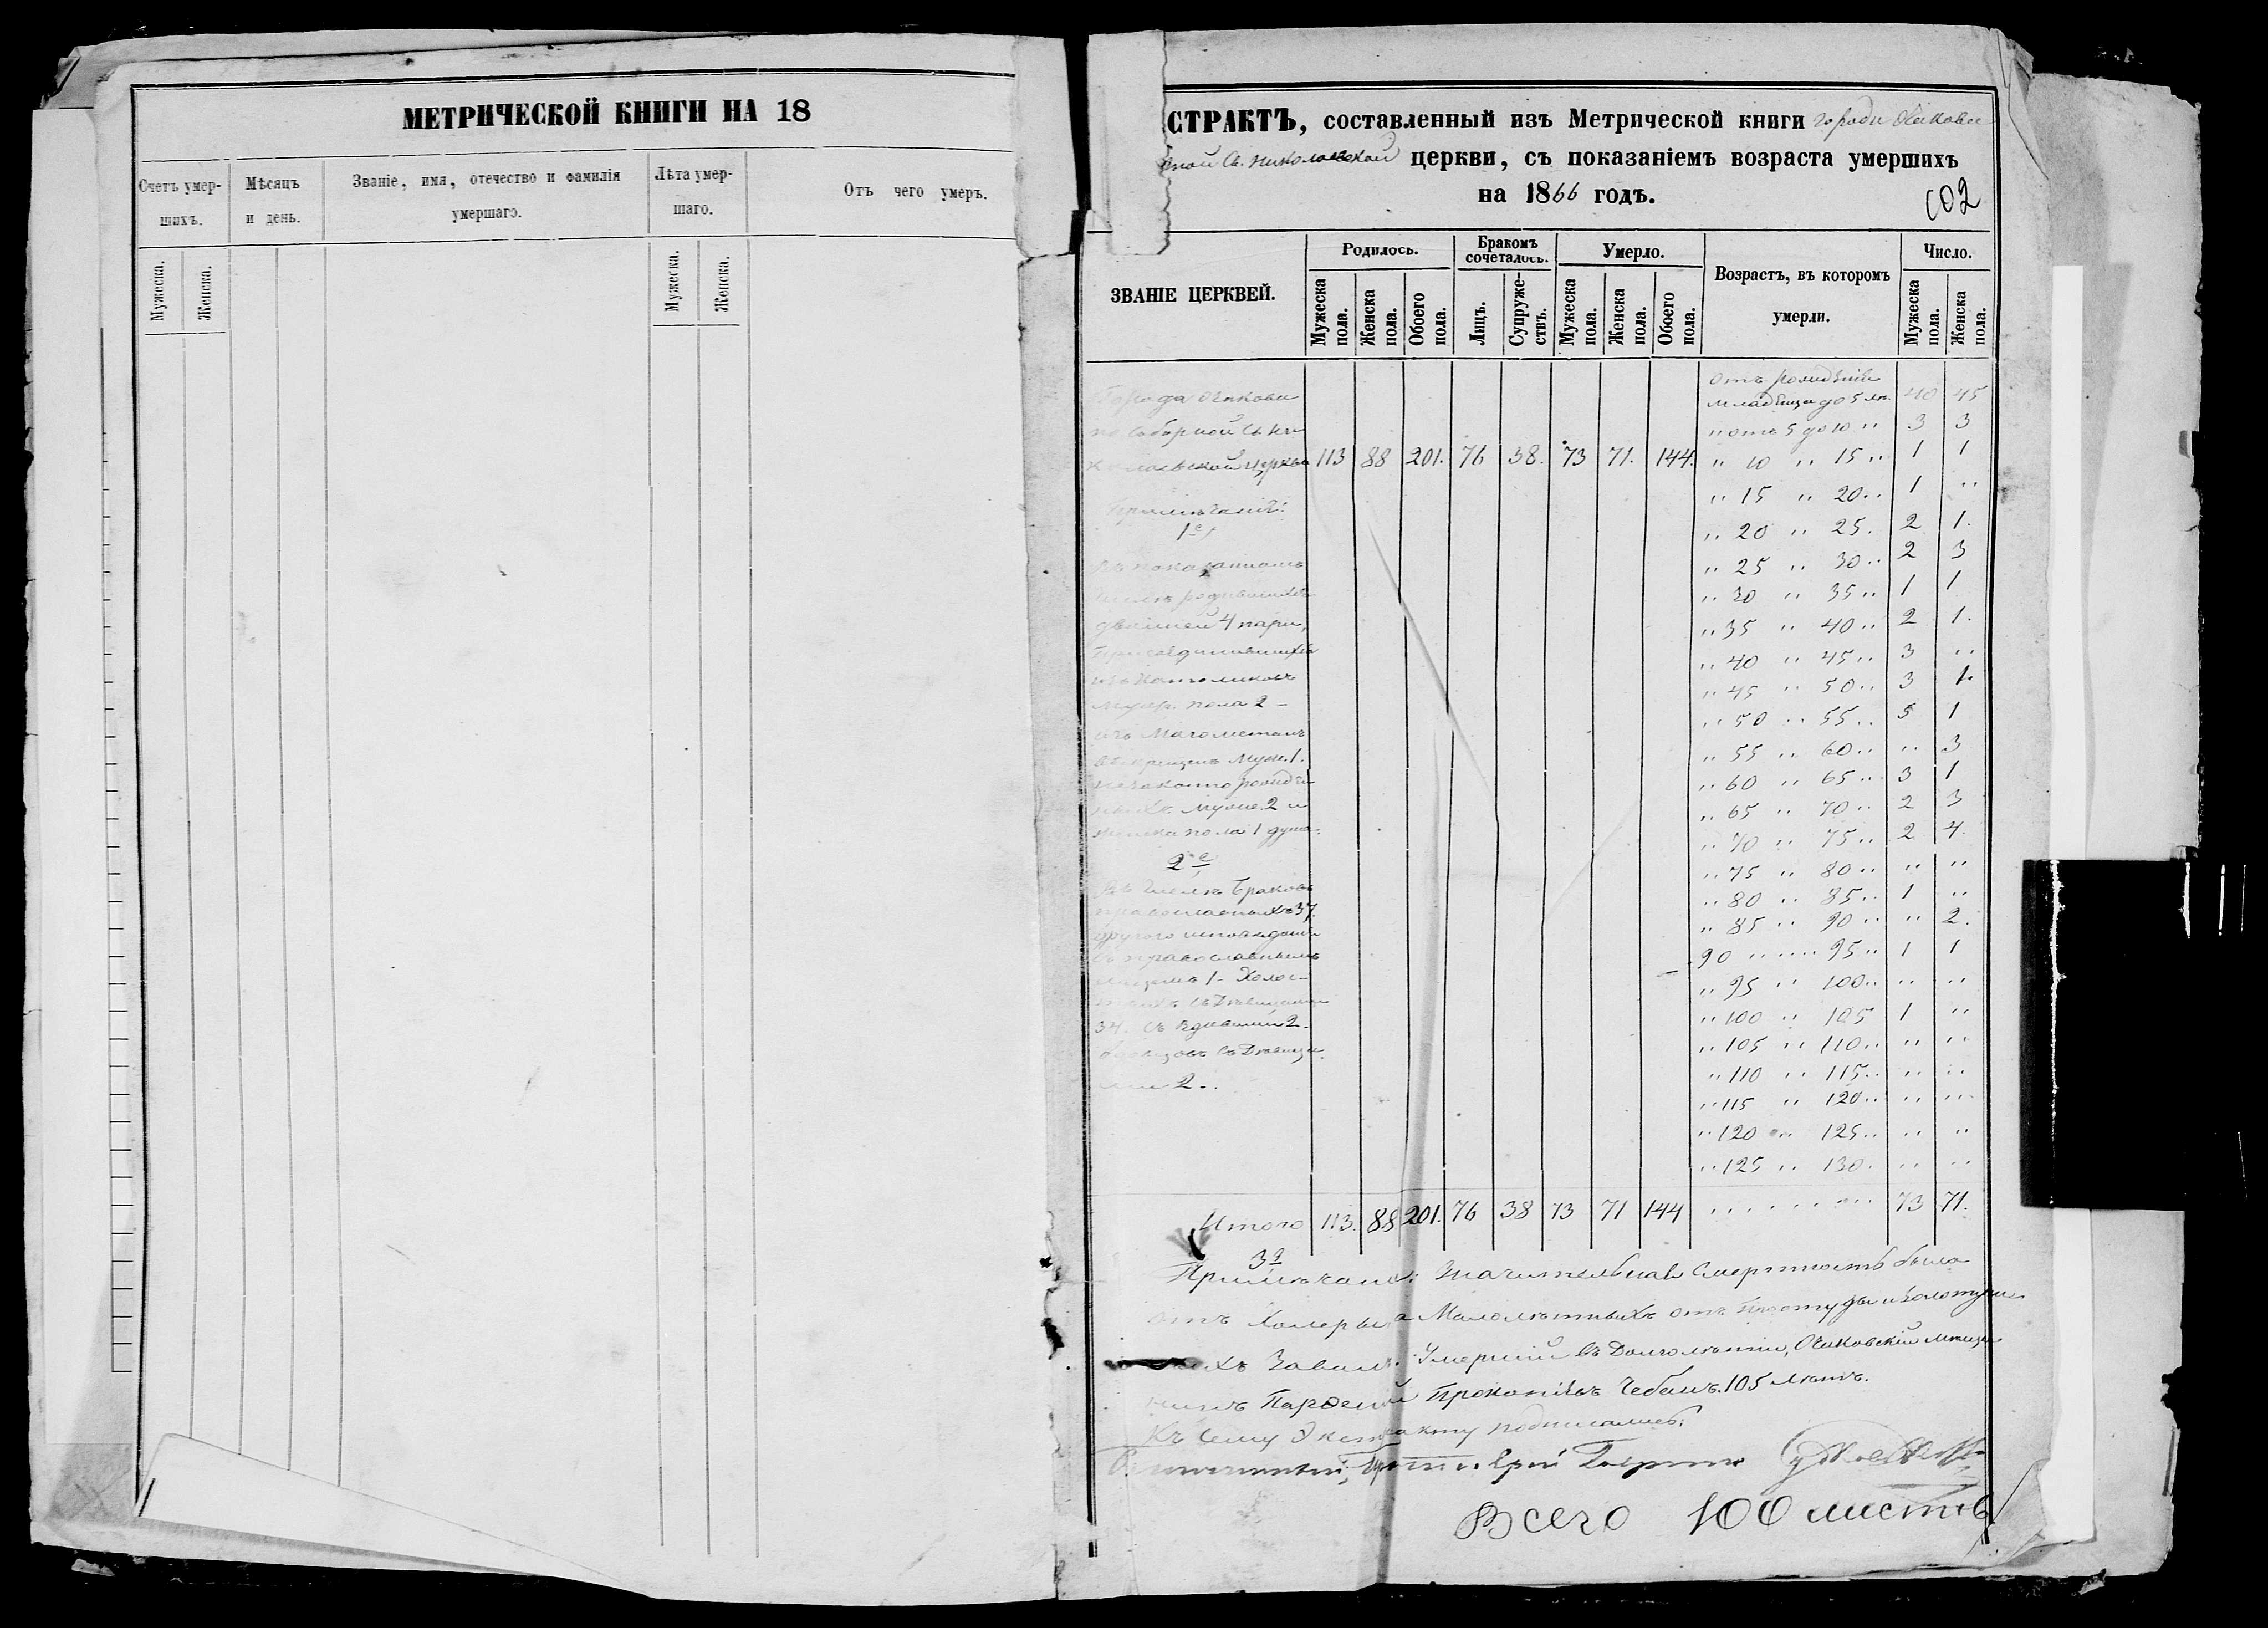 МЕТРИЧЕСКОЙ КНИГИ НА 18
Счетъ умер-
шихъ.
Мѣсяцъ
и день.
Званіе, имя, отечество и фамилія
умершаго.
Лѣта умер-
шаго.
Отъ чего умеръ.
Мужеска.
Женска.
Мужеска.
Женска.
СТРАКТЪ, составленный изъ Метрической книги города Очакова
ной Св. Николаевской церкви, съ показаніемъ возраста умершихъ
на 1866 годъ.
102
ЗВАНІЕ ЦЕРКВЕЙ.
Родилось.
Бракомъ
сочеталось.
Умерло.
Возрастъ, въ которомъ
умерли.
Число.
Мужеска пола.
Женска пола.
Обоего пола.
Лицъ.
Супруже-
ствъ.
Мужеска пола.
Женска пола.
Обоего пола.
Мужеска пола.
Женска пола.
Города Очакова
по Соборной Св. Ни
колаевской церкви 113 88 201. 76 38. 73 71. 144.
Примѣчаніе:
1е
въ показанномъ
числѣ родившихся
двойней 4 пары,
присоединившихся
изъ Католиковъ
муж. пола 2 -
изъ Магометанъ
окрещенъ муж. 1.
незаконно рожден
ныхъ муже. 2 и
женска пола 1 душа.
2е
Въ числѣ браковъ
православныхъ 37.
другого исповеданія
съ православнымъ
лицемъ 1 - Холос-
тыхъ съ Дѣвицами
34. съ вдовами 2.
вдовцовъ съ Дѣвица
ми 2..
отъ рожденія
младенца до 5 лѣ. 40 45
,, отъ 5 до 10 ,, 3 3
,, 10 ,, 15 ,, 1 1
,, 15 ,, 20 ,, 1 ,,
,, 20 ,, 25. 2 1.
,, 25 ,, 30 ,, 2 3
,, 30 ,, 35 ,, 1 1
,, 35 ,, 40 ,, 2 1.
,, 40 ,, 45 ,, 3 ,,
,, 45 ,, 50 ,, 3 1.
,, 50 ,, 55 ,, 5 1
,, 55 ,, 60 ,, ,, 3
,, 60 ,, 65 ,, 3 1
,, 65 ,, 70 ,, 2 3
,, 70 ,, 75 ,, 2 4.
,, 75 ,, 80 ,, ,, ,,
,, 80 ,, 85 ,, 1 ,,
,, 85 ,, 90 ,, ,, 2.
90 ,, ,, ,, 95 ,, 1 1
,, 95 ,, 100 ,, ,, ,,
,, 100 ,, 105 1 ,,
,, 105 ,, 110 ,, ,, ,,
,, 110 ,, 115 ,, ,, ,,
,, 115 ,, 120 ,, ,, ,,
,, 120 ,, 125 ,, ,, ,,
,, 125 ,, 130. ,, ,,
Итого 113. 88 201. 76 38 73 71 144 73 71.
3е
Примѣчаніе: Значительная Смертность была
отъ Холеры а Малолѣтныхъ отъ простуды и золотуш
Умершій въ Долголѣтіи, Очаковскій мѣща
нинъ Парѳеній Прокопіевъ Чебанъ. 105 лѣтъ.
Къ Сему Экстракту подписались:
Всего 100 листовъ